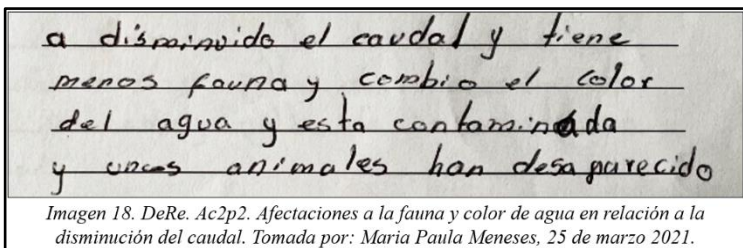 a disminuido el caudal y tiene
menos fauna y combio el color
del agua y esta contaminada
y unos animales han desaparecido
Imagen 18. DeRe. Ac2p2. Afectaciones a la fauna y color de agua en relación a la
disminución del caudal. Tomada por: Maria Paula Meneses, 25 de marzo 2021.